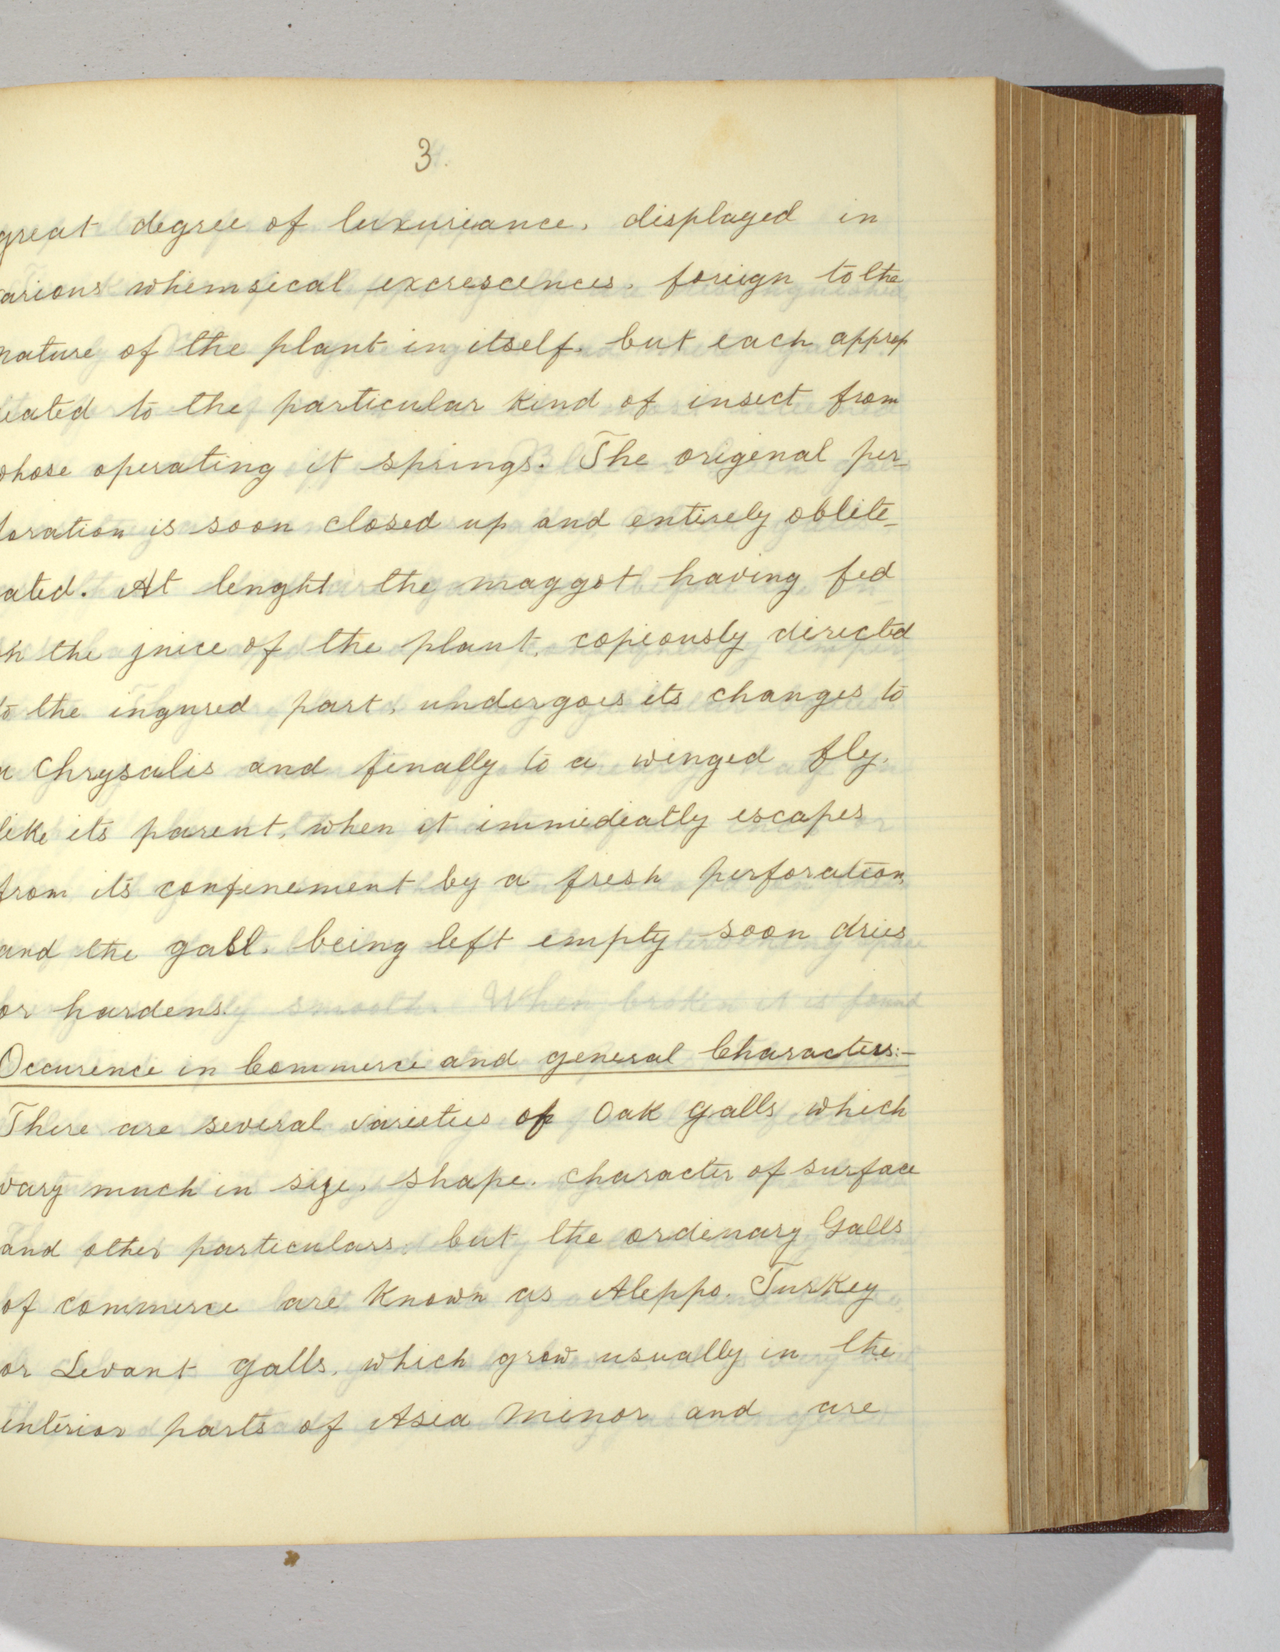 3.
great degree of luxuriance, displayed in
arious whimsical excrescences, foreign to the
nature of the plant in itself. but each approp
iated to the particular kind of insect from
whose operating it springs. The original per_
foration is soon closed up and entirely oblite_
ated. At lenght the maggot having fed
n the juice of the plant, copiously directed
to the ingured part, undergoes its changes to
a Chrysalis and finally to a winged fly.
like its parent, when it immiediatly escapes
from its confinement by a fresh perforation,
and the gall. being left empty soon dries
or hardens.
Occurence in Commerce and general Characters:-
There are several varieties of Oak galls which
vary much in size, shape. character of surface
and other particulars but the ordinary Galls
of commerce are known as Aleppo. Turkey
or Levant galls, which grow usually in the
interior parts of Asia Minor and are